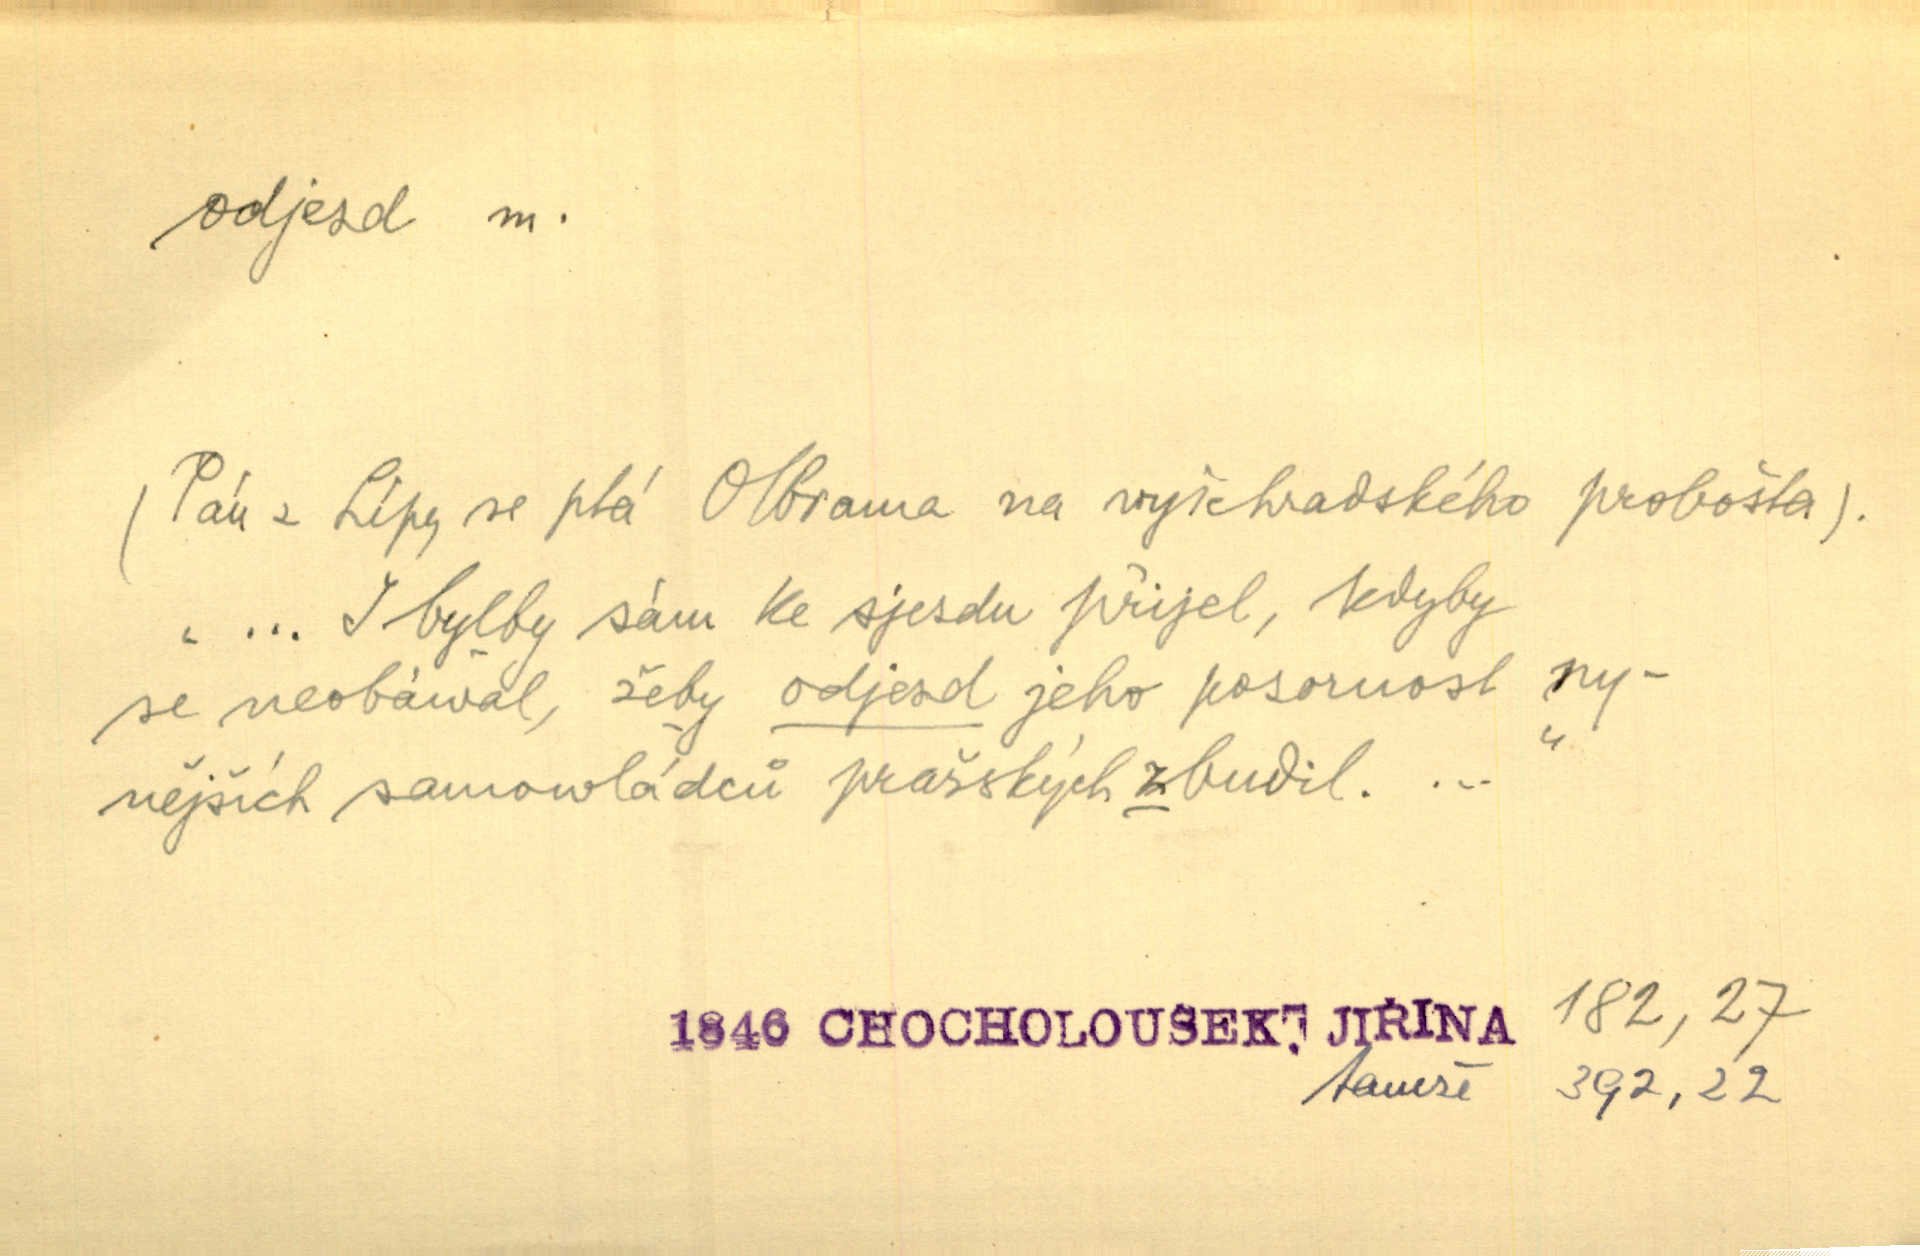 odjezd m.
(Pán z Lípy se ptá Olbrama na vyšehradského probošta).
„ ... I bylby sám ke sjezdu přijel, kdyby
se neobáwal, žeby odjezd jeho pozornost ny-
nějších samowládců pražských zbudil. ... "
1846 CHOCHOLOUŠEK, JIŘINA 182, 27
tamže 392, 22